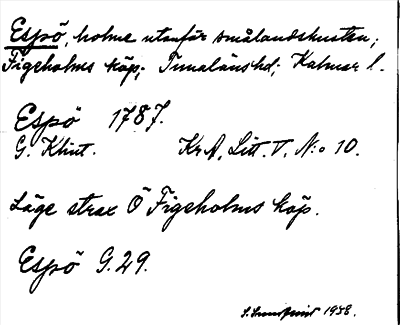 Espö, holme utanför smålandskusten;
Figeholms köp; Tunaläns hd; Kalmar l.
Espö 1787.
G. Klint. KrA, Litt. V, N:o 10.
Läge strax Ö Figeholms köp.
Espö G.29.
S. 1938.